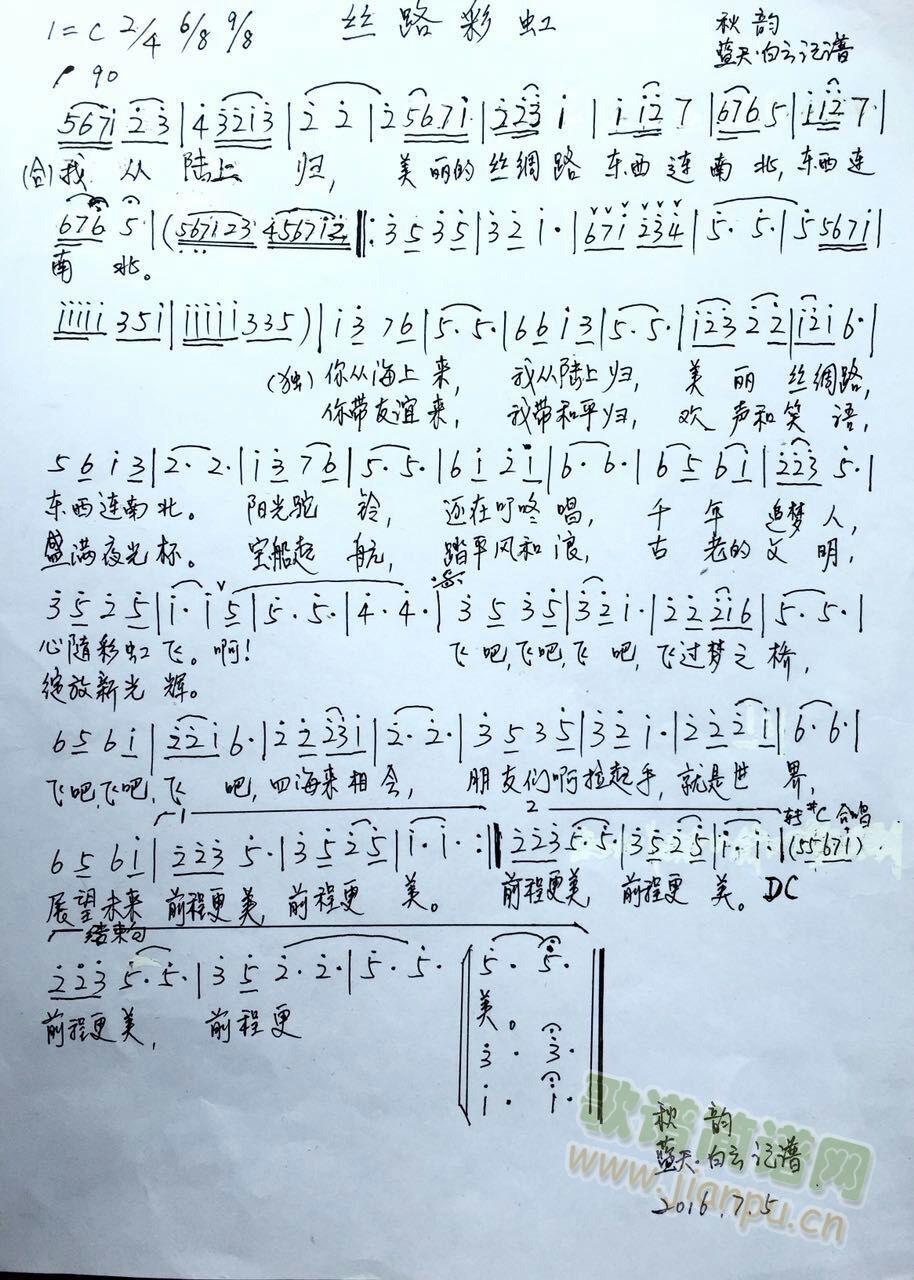 1=C 2/4 6/8 9/8 丝路彩虹 秋韵
蓝天·白云记谱
90
5671 23|43213|2 2|25671|223 1|1 12 7|676 5|112 7·|
(合)我 从 陆上 归, 美丽的丝绸路 东西连南北,东西连
676 5·|(567123 456712‖:3 5 3 5|3 2 1·|671 234|5· 5·|5 5671|
南 北。
11111 351|11111 335)|1 3 76|5· 5·|6 6 1 3|5· 5·|123 22|121 6·|
(独)你从海上来, 我从陆上归, 美丽丝绸路,
你带友谊来, 我带和平归, 欢声和笑语,
5 6 1 3|2· 2·|1 3 7 6|5· 5·|6 1 2 1|6· 6·|6 5 6 1|223 5·|
东西连南北。 阳光驼铃, 还在叮咚唱, 千年追梦人,
盛满夜光杯。 宝船起航, 踏平风和浪, 古老的文明,
3 5 2 5|1· 1 5|5· 5·|4· 4·|3 5 3 5|3 2 1·|2 2 216|5· 5·|
心随彩虹飞。啊! 飞吧,飞吧,飞吧,飞过梦之桥,
绽放新光辉。
6 5 6 1|221 6·|2 2 231|2· 2·|3 5 3 5|3 2 1·|2 2 2 1|6· 6·|
飞吧飞吧,飞吧,四海来相会, 朋友们啊拉起手,就是世界,
1 2 转#C 合唱
6 5 6 1|223 5·|3 5 2 5|1· 1·:‖223 5· 5·|3 5 2 5|1· 1·|(55671)
展望未来 前程更美,前程更美。 前程更美,前程更美。DC
结束句
223 5· 5·|3 5 2· 2·|5· 5·|5· 5·
前程更美, 前程更
美。
3· 3·
1· 1·
歌谱简谱网
www.jianpu.cn
秋韵
蓝天·白云记谱
2016.7.5